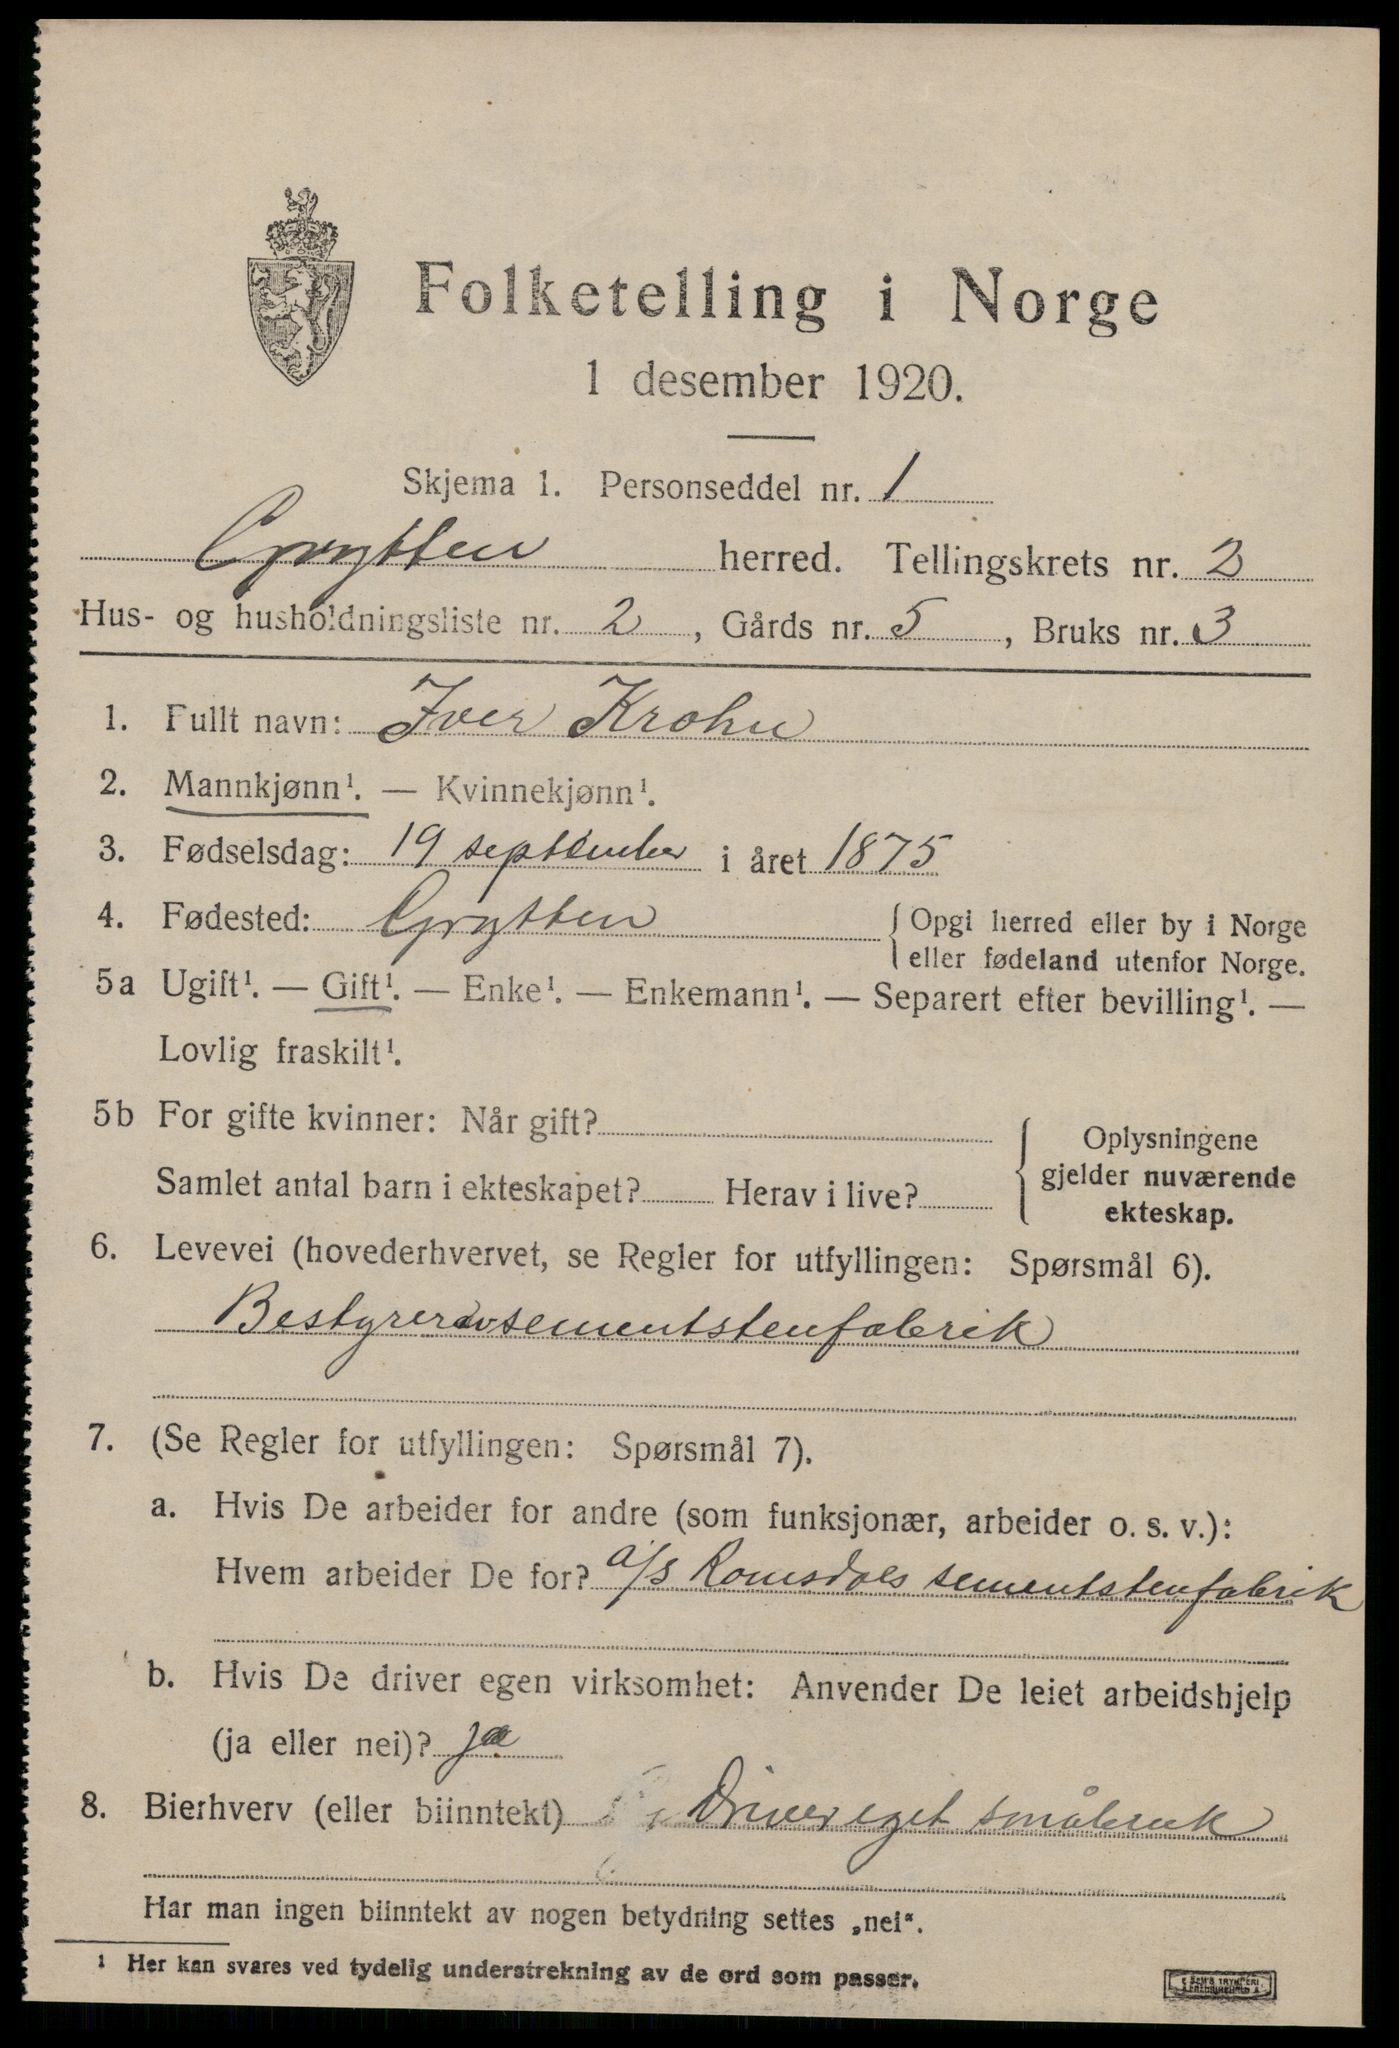 Folketelling i Norge
1 desember 1920.
Skjema 1. Personseddel nr. 1
Grytten herred. Tellingskrets nr. 2
Hus- og husholdningsliste nr. 2, Gårds nr. 5, Bruks nr. 3
1. Fullt navn: Iver Krohn
2. Mannkjønn¹. — Kvinnekjønn¹.
3. Fødselsdag: 19 september i året 1875
4. Fødested: Grytten { Opgi herred eller by i Norge
eller fødeland utenfor Norge.
5a Ugift¹. — Gift¹. — Enke¹. — Enkemann¹. — Separert efter bevilling¹. —
Lovlig fraskilt¹.
5b For gifte kvinner: Når gift?
Samlet antal barn i ekteskapet? Herav i live?
{ Oplysningene
gjelder nuværende
ekteskap.
6. Levevei (hovederhvervet, se Regler for utfyllingen: Spørsmål 6).
Bestyrer av sementstenfabrik
7. (Se Regler for utfyllingen: Spørsmål 7).
a. Hvis De arbeider for andre (som funksjonær, arbeider o. s. v.):
Hvem arbeider De for? a/s Romsdals sementstenfabrik
b. Hvis De driver egen virksomhet: Anvender De leiet arbeidshjelp
(ja eller nei)? ja
8. Bierhverv (eller biinntekt) Driver eget småbruk
Har man ingen biinntekt av nogen betydning settes „nei“.
¹ Her kan svares ved tydelig understrekning av de ord som passer.